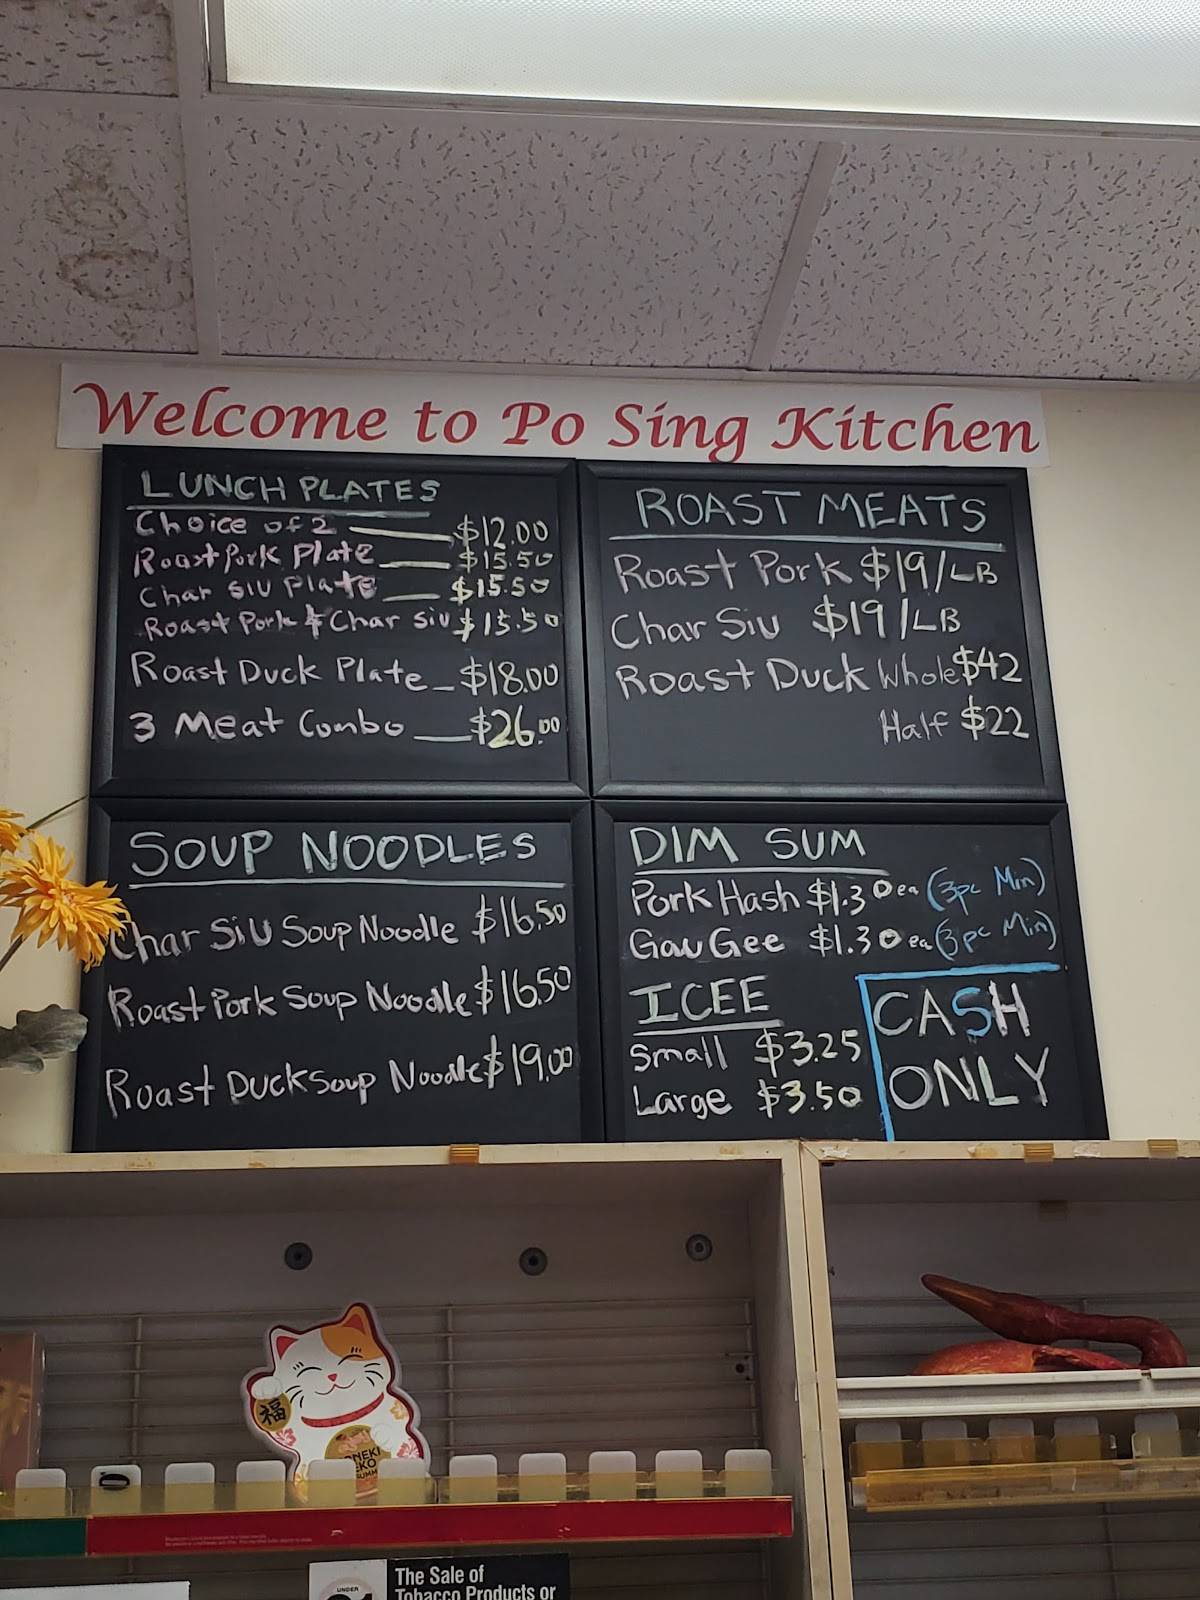 Welcome to Po Sing Kitchen
LUNCH PLATES
Choice of 2 $12.00
Roast Pork Plate $15.50
Char Siu Plate $15.50
Roast Pork & Char Siu $15.50
Roast Duck Plate $18.00
3 Meat Combo $26.00
ROAST MEATS
Roast Pork $19/LB
Char Siu $19/LB
Roast Duck Whole $42
Half $22
SOUP NOODLES
Char Siu Soup Noodle $16.50
Roast Pork Soup Noodle $16.50
Roast Duck Soup Noodle $19.00
DIM SUM
Pork Hash $1.30 ea (3pc Min)
Gau Gee $1.30 ea (3pc Min)
ICEE
Small $3.25
Large $3.50
CASH
ONLY
福
UNDER
The Sale of
Tobacco Products or